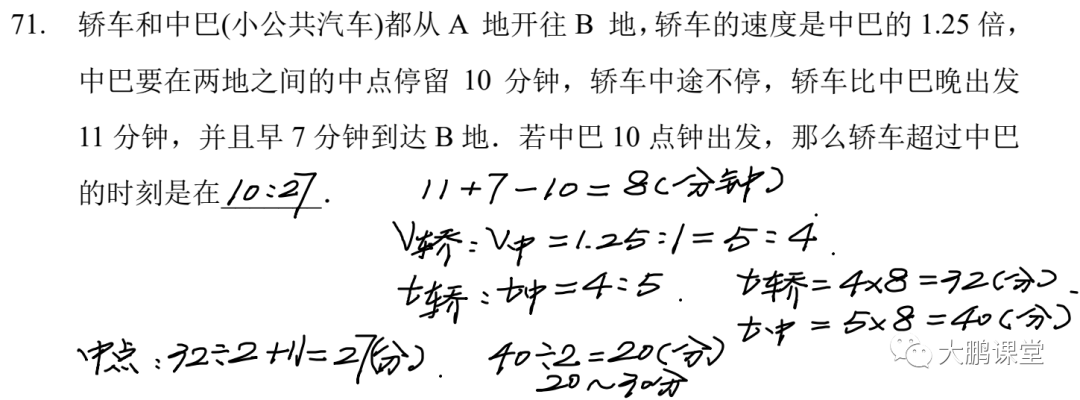 71. 轿车和中巴(小公共汽车)都从 A 地开往 B 地，轿车的速度是中巴的 1.25 倍，
中巴要在两地之间的中点停留 10 分钟，轿车中途不停，轿车比中巴晚出发
11 分钟，并且早 7 分钟到达 B 地．若中巴 10 点钟出发，那么轿车超过中巴
的时刻是在 10:27 ． 11+7-10=8(分钟)
V轿:V中=1.25:1=5:4.
t轿:t中=4:5. t轿=4×8=32(分).
t中=5×8=40(分)
中点:32÷2+11=27(分). 40÷2=20(分)
20~30分
大鹏课堂